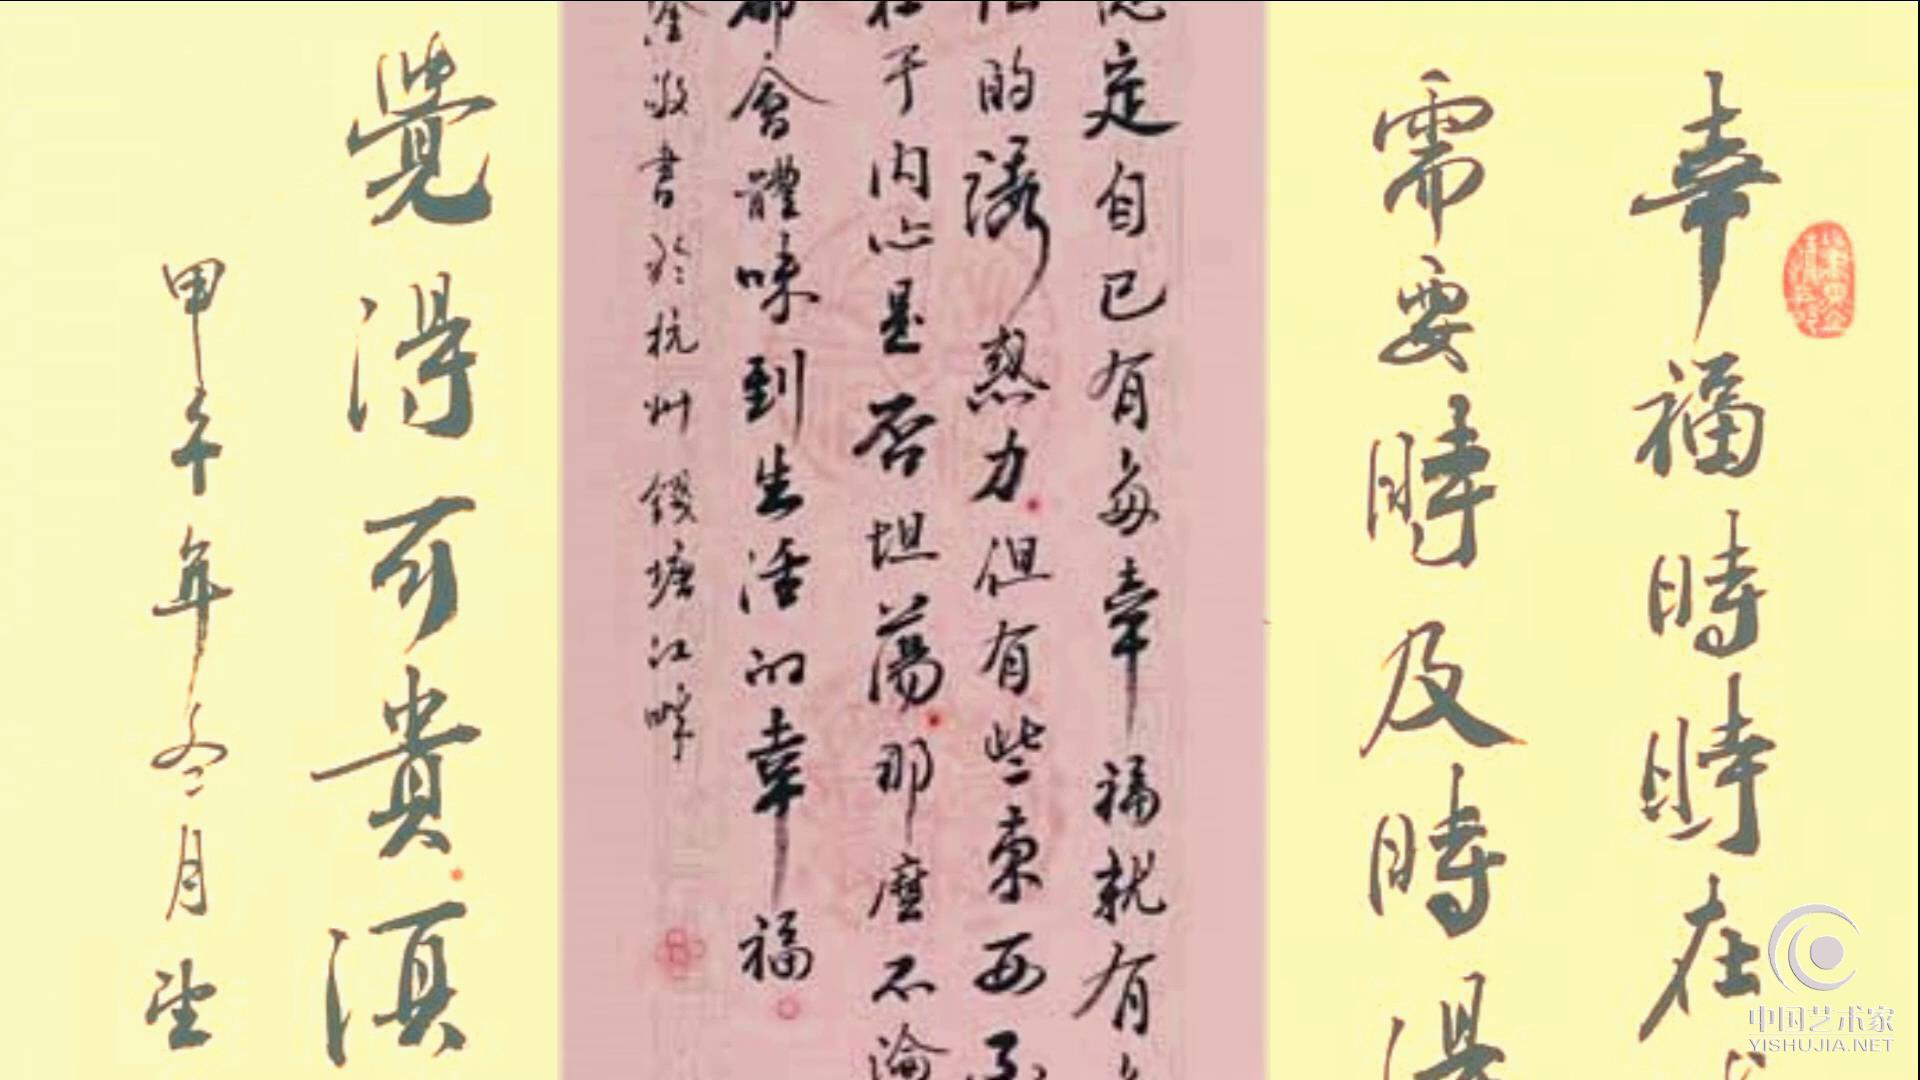 幸福時時在
需要時及時得
定自己有每幸福就有
的誘熱力但有些東西不
在于内心是否坦蕩那麽不論
都會體味到生活的幸福
敬書於杭州錢塘江畔
覺得可貴須
甲午年冬月望
中国艺术家
YISHUJIA.NET